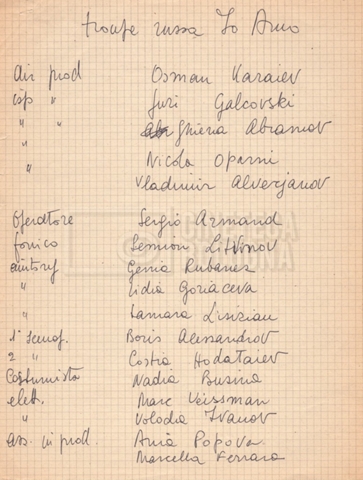 troupe russa Io Amo
dir prod Osman Karaiev
isp " Juri Galcovski
" " Ghena Abramov
" Nicola Oparni
" Vladimir Alverjanov
Operatore Sergio Armand
fonico Semion Litvinov
aiutoref Genia Rubanez
" Lidia Goriaceva
" Tamara Lisizian
1° scenof. Boris Alessandrov
2 " Costia Hodataiev
Costumista Nadia Busina
elett. Marc Veissman
" Volodia Ivanov
ass. in prod. Ania Popova
Marcella Ferrara